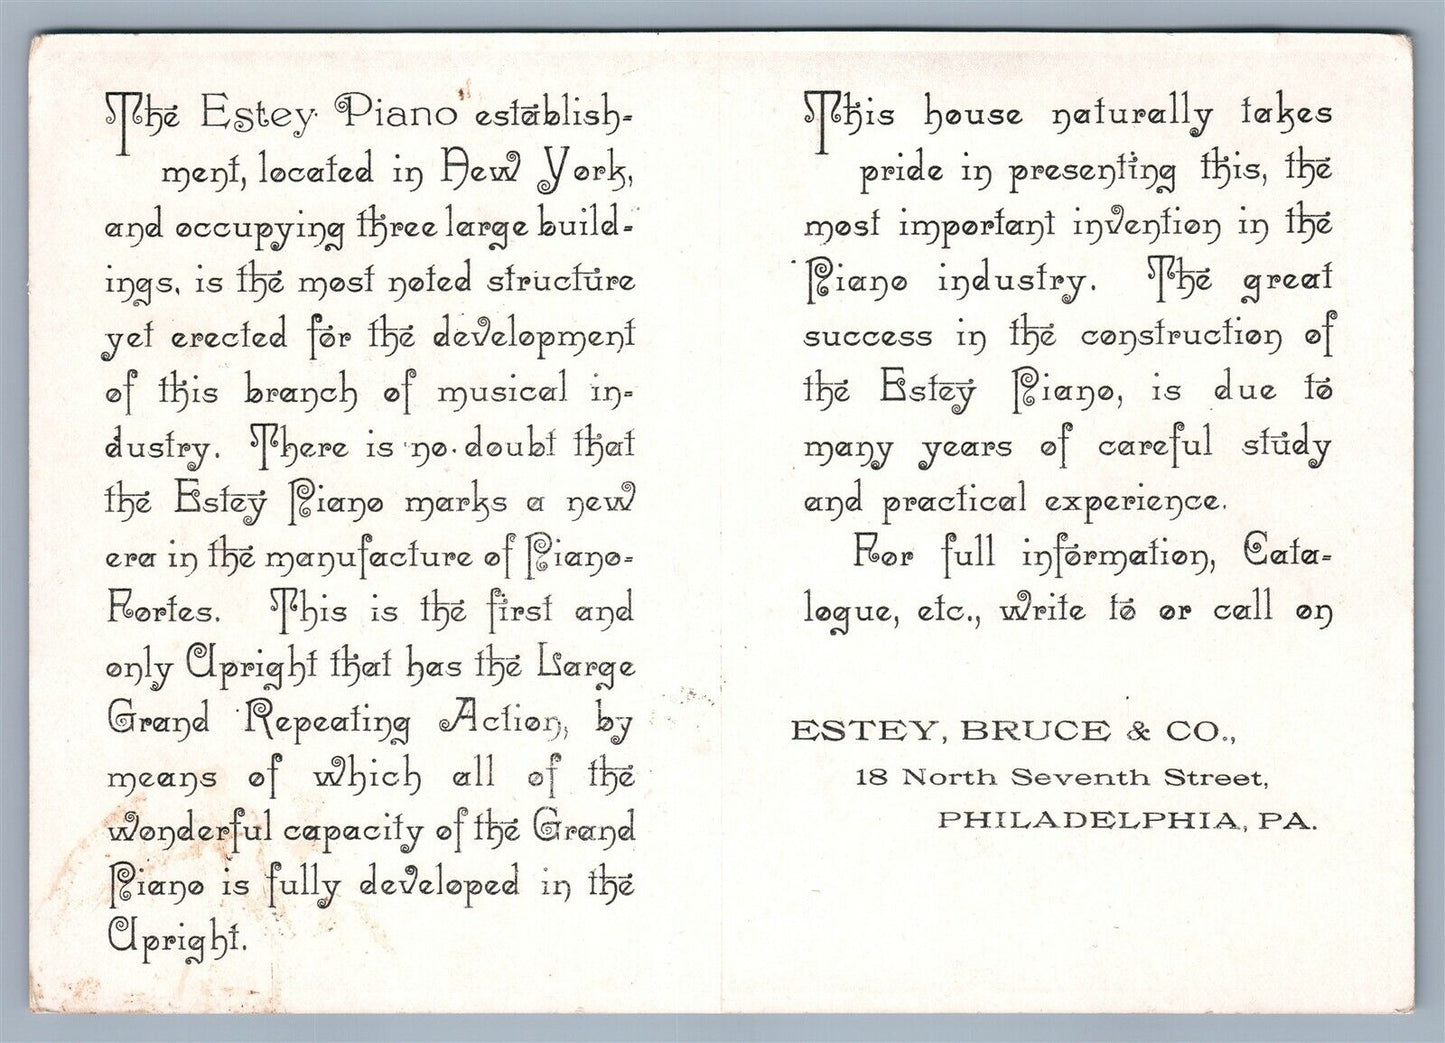 The Estey Piano establish-
ment, located in New York,
and occupying three large build-
ings, is the most noted structure
yet erected for the development
of this branch of musical in-
dustry. There is no doubt that
the Estey Piano marks a new
era in the manufacture of Piano-
Fortes. This is the first and
only Upright that has the Large
Grand Repeating Action, by
means of which all of the
wonderful capacity of the Grand
Piano is fully developed in the
Upright.
This house naturally takes
pride in presenting this, the
most important invention in the
Piano industry. The great
success in the construction of
the Estey Piano, is due to
many years of careful study
and practical experience.
For full information, Cata-
logue, etc., write to or call on
ESTEY, BRUCE & CO.,
18 North Seventh Street,
PHILADELPHIA, PA.